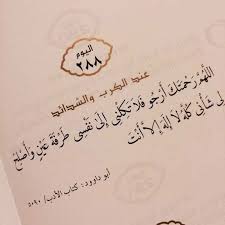 اليوم
٢٨٨
عند الكرب والشدائد
اللَّهُمَّ رَحْمَتَكَ أَرْجُو فَلَا تَكِلْنِي إِلَى نَفْسِي طَرْفَةَ عَيْنٍ وَأَصْلِحْ
لِي شَأْنِي كُلَّهُ لَا إِلَهَ إِلَّا أَنْتَ
أبو داوود: كتاب الأدب/ ٥٠٩٠